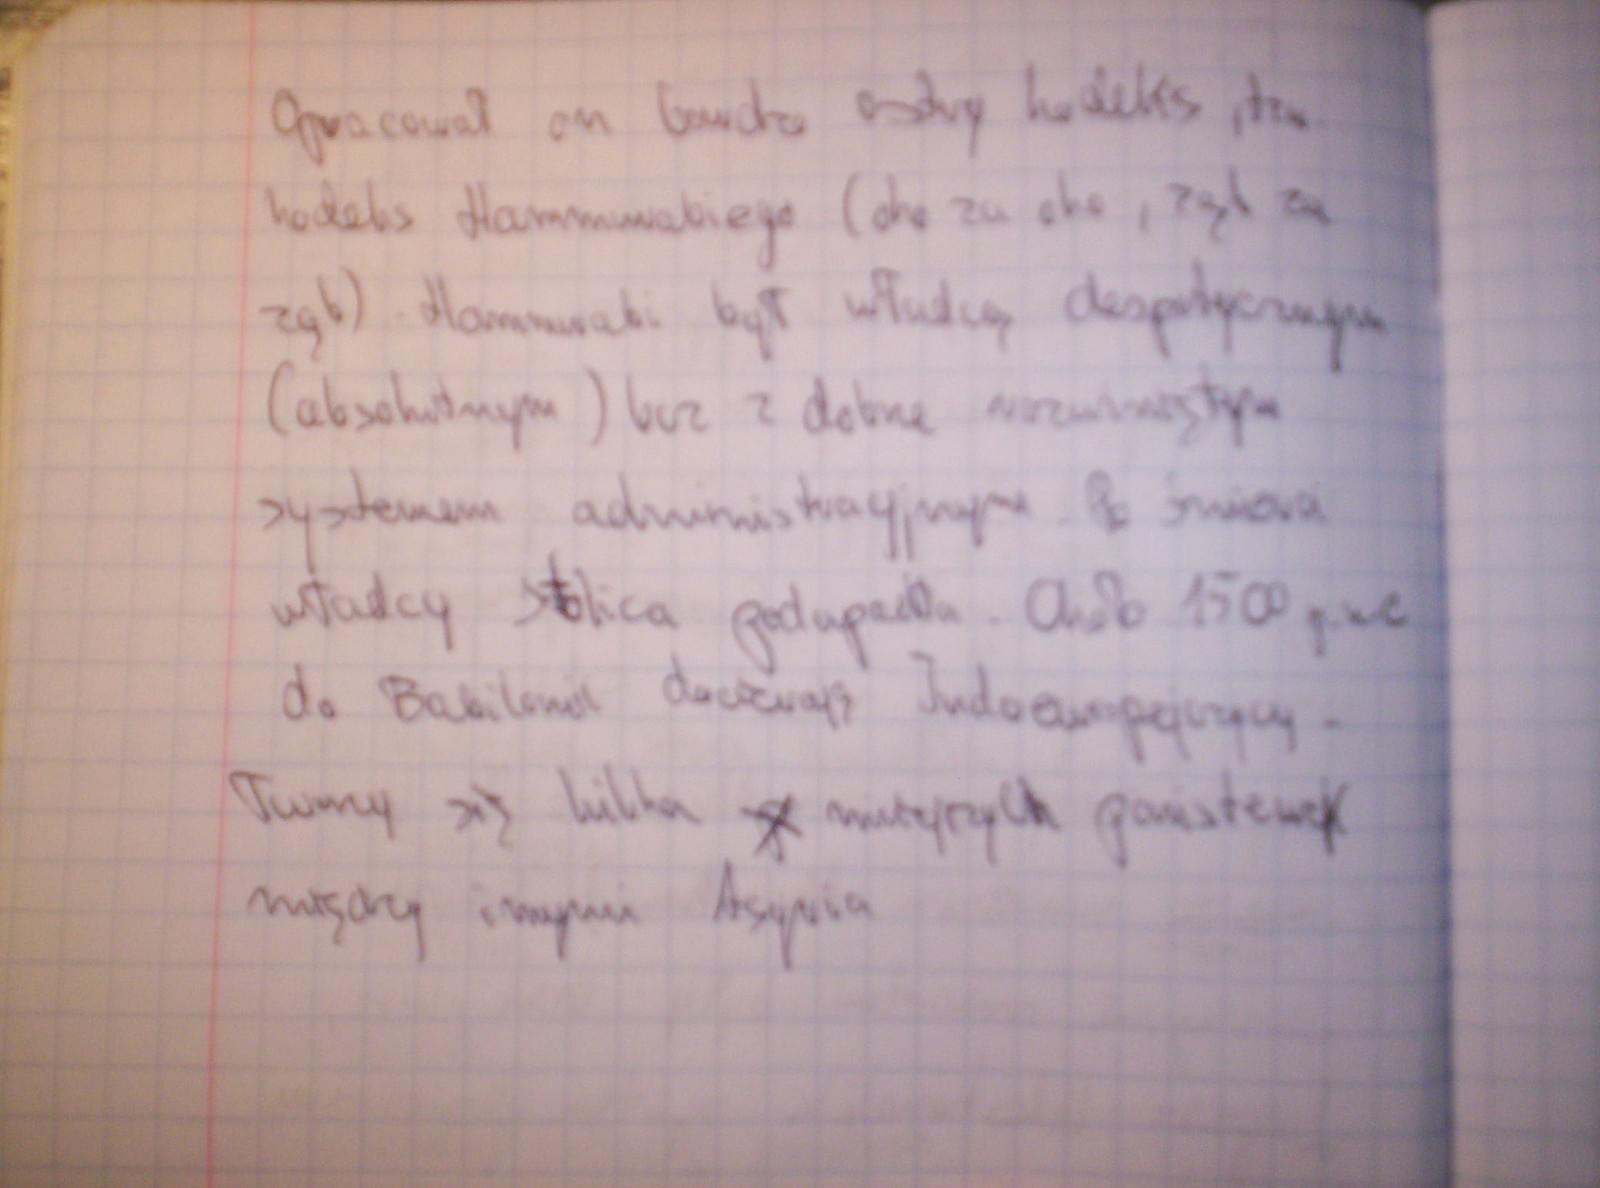 Opracował on bardzo ostry kodeks, tzw.
kodeks Hammurabiego (oko za oko, ząb za
ząb). Hammurabi był władcą despotycznym
(absolutnym) lecz z dobrze rozwiniętym
systemem administracyjnym. Po śmierci
władcy stolica podupadła. Około 1500 p.n.e
do Babilonii docierają Indoeuropejczycy.
Tworzy się kilka mniejszych państewek
między innymi Asyria